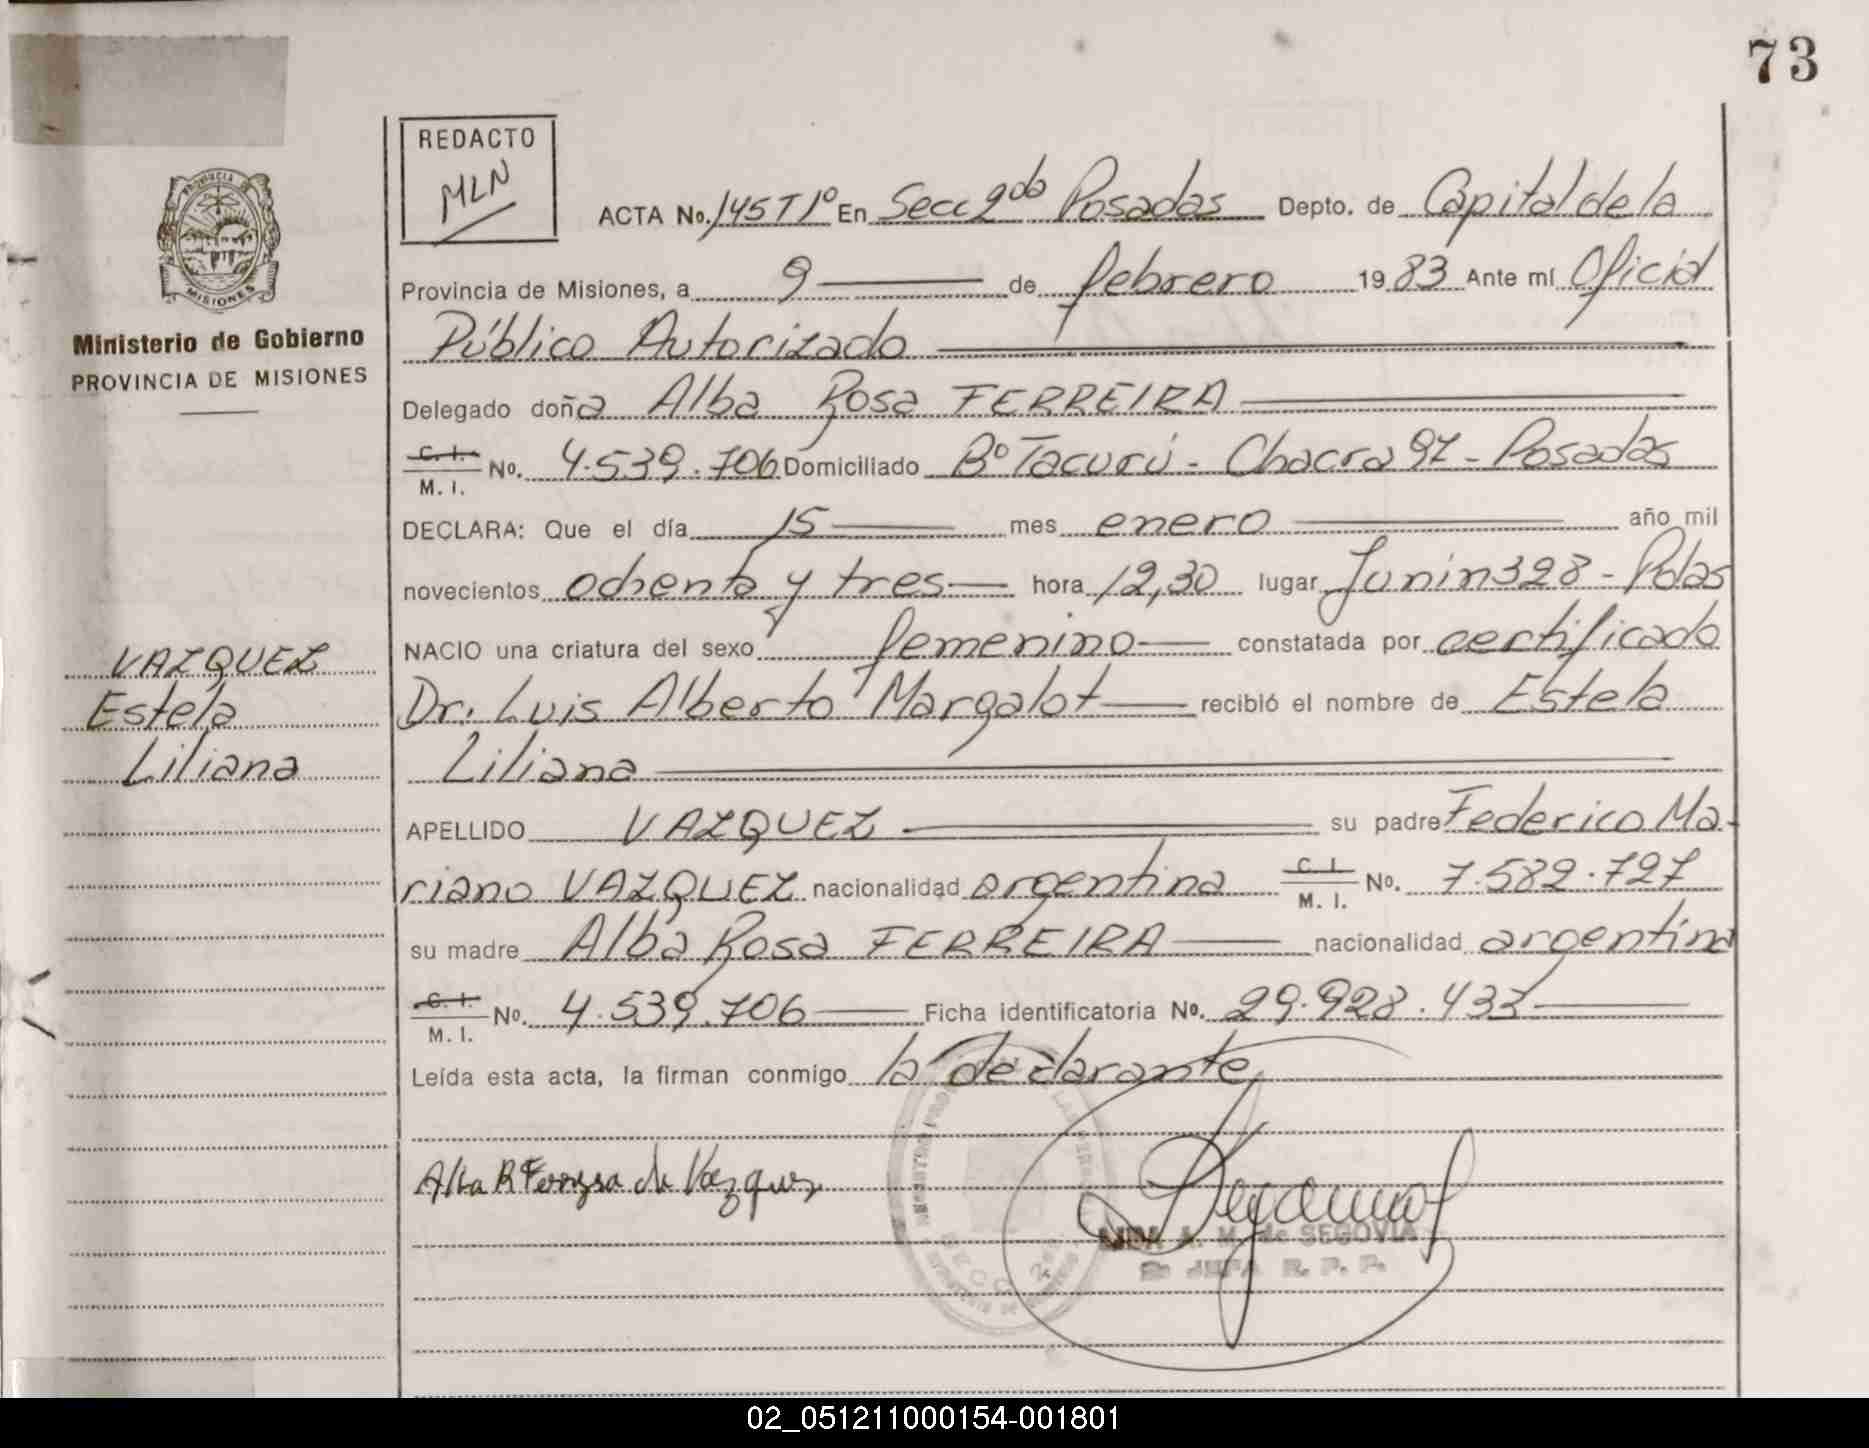 73
REDACTO
MLN
PROVINCIA DE
MISIONES
Ministerio de Gobierno
PROVINCIA DE MISIONES
VAZQUEZ
Estela
Liliana
ACTA No. 145 T1º En Secc 2da Posadas Depto. de Capital de la
Provincia de Misiones, a 9 de febrero 1983 Ante mí Oficial
Público Autorizado
Delegado doña Alba Rosa FERREIRA
C. I. / M. I. No. 4.539.706 Domiciliado Bº Tacurú - Chacra 97 - Posadas
DECLARA: Que el día 15 mes enero año mil
novecientos ochenta y tres hora 12,30 lugar Junin 328 - Pdas
NACIO una criatura del sexo femenino constatada por certificado
Dr. Luis Alberto Margalot recibió el nombre de Estela
Liliana
APELLIDO VAZQUEZ su padre Federico Ma-
riano VAZQUEZ nacionalidad argentina C. I. / M. I. No. 7.582.727
su madre Alba Rosa FERREIRA nacionalidad argentina
C. I. / M. I. No. 4.539.706 Ficha identificatoria No. 29.928.433
Leída esta acta, la firman conmigo la declarante
Alba R Ferreyra de Vazquez
A. M. de SEGOVIA
JEFA R. P. P.
02_051211000154-001801